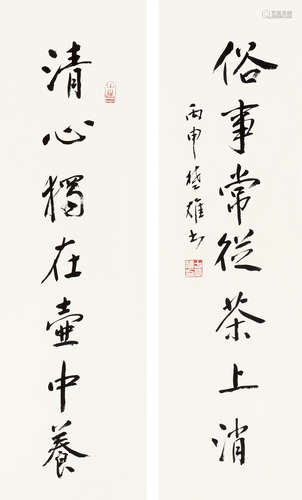 俗事常從茶上消
丙申楚雄书
清心獨在壺中養